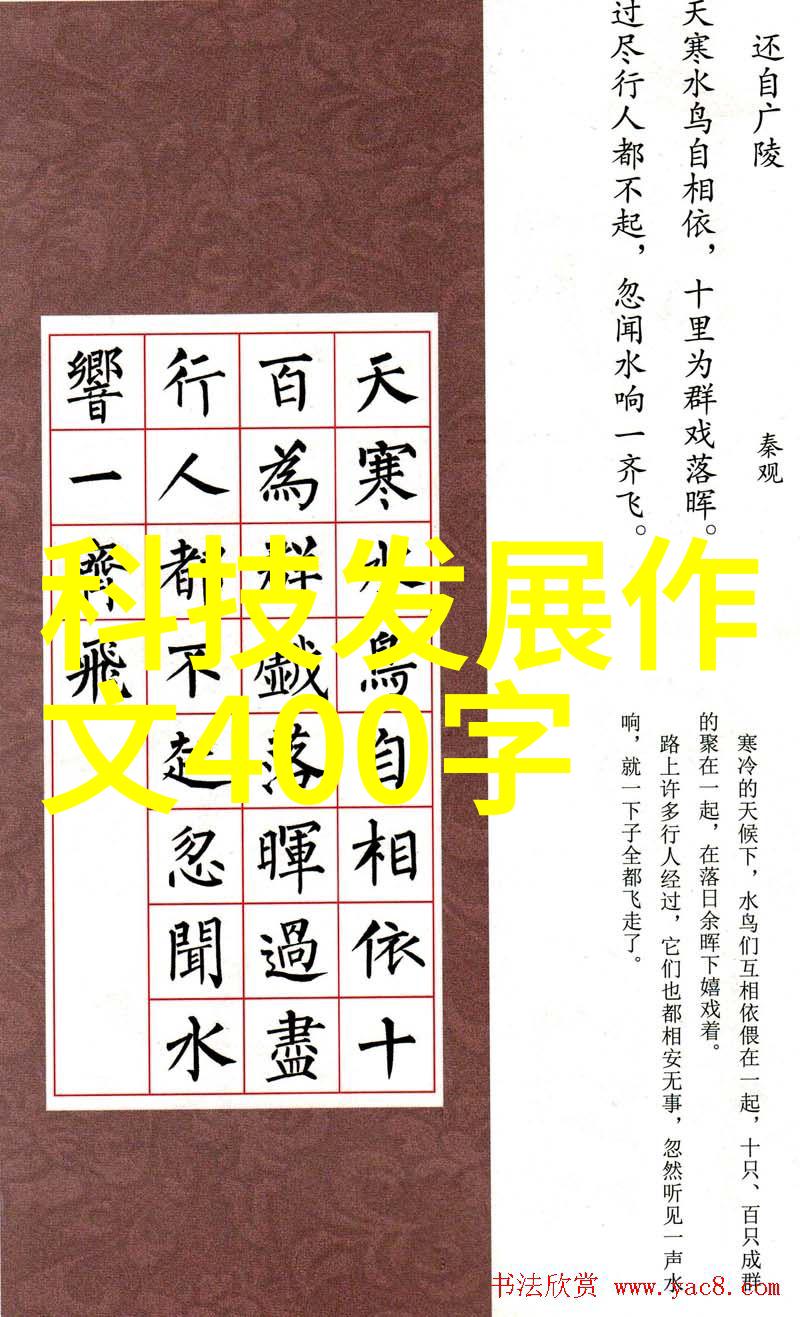 还自广陵
秦观
天寒水鸟自相依，十里为群戏落晖。
过尽行人都不起，忽闻水响一齐飞。
寒冷的天候下，水鸟们互相依偎在一起，十只、百只成群
的聚在一起，在落日余晖下嬉戏着。
路上许多行人经过，它们也都相安无事，忽然听见一声水
响，就一下子全都飞走了。
天寒水鳥自相依十
百為群戲落暉過盡
行人都不起忽聞水
響一齊飛
科技发展作
文400字
书法欣赏 www.yac8.com